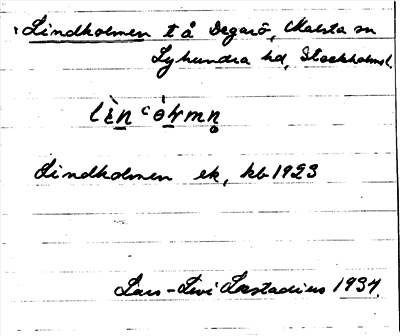 Lindholmen t å Degarö, Malsta sn
Lyhundra hd, Stockholms l.
Lindholmen ek, kb 1923
Lars-Levi Læstadius 1934.